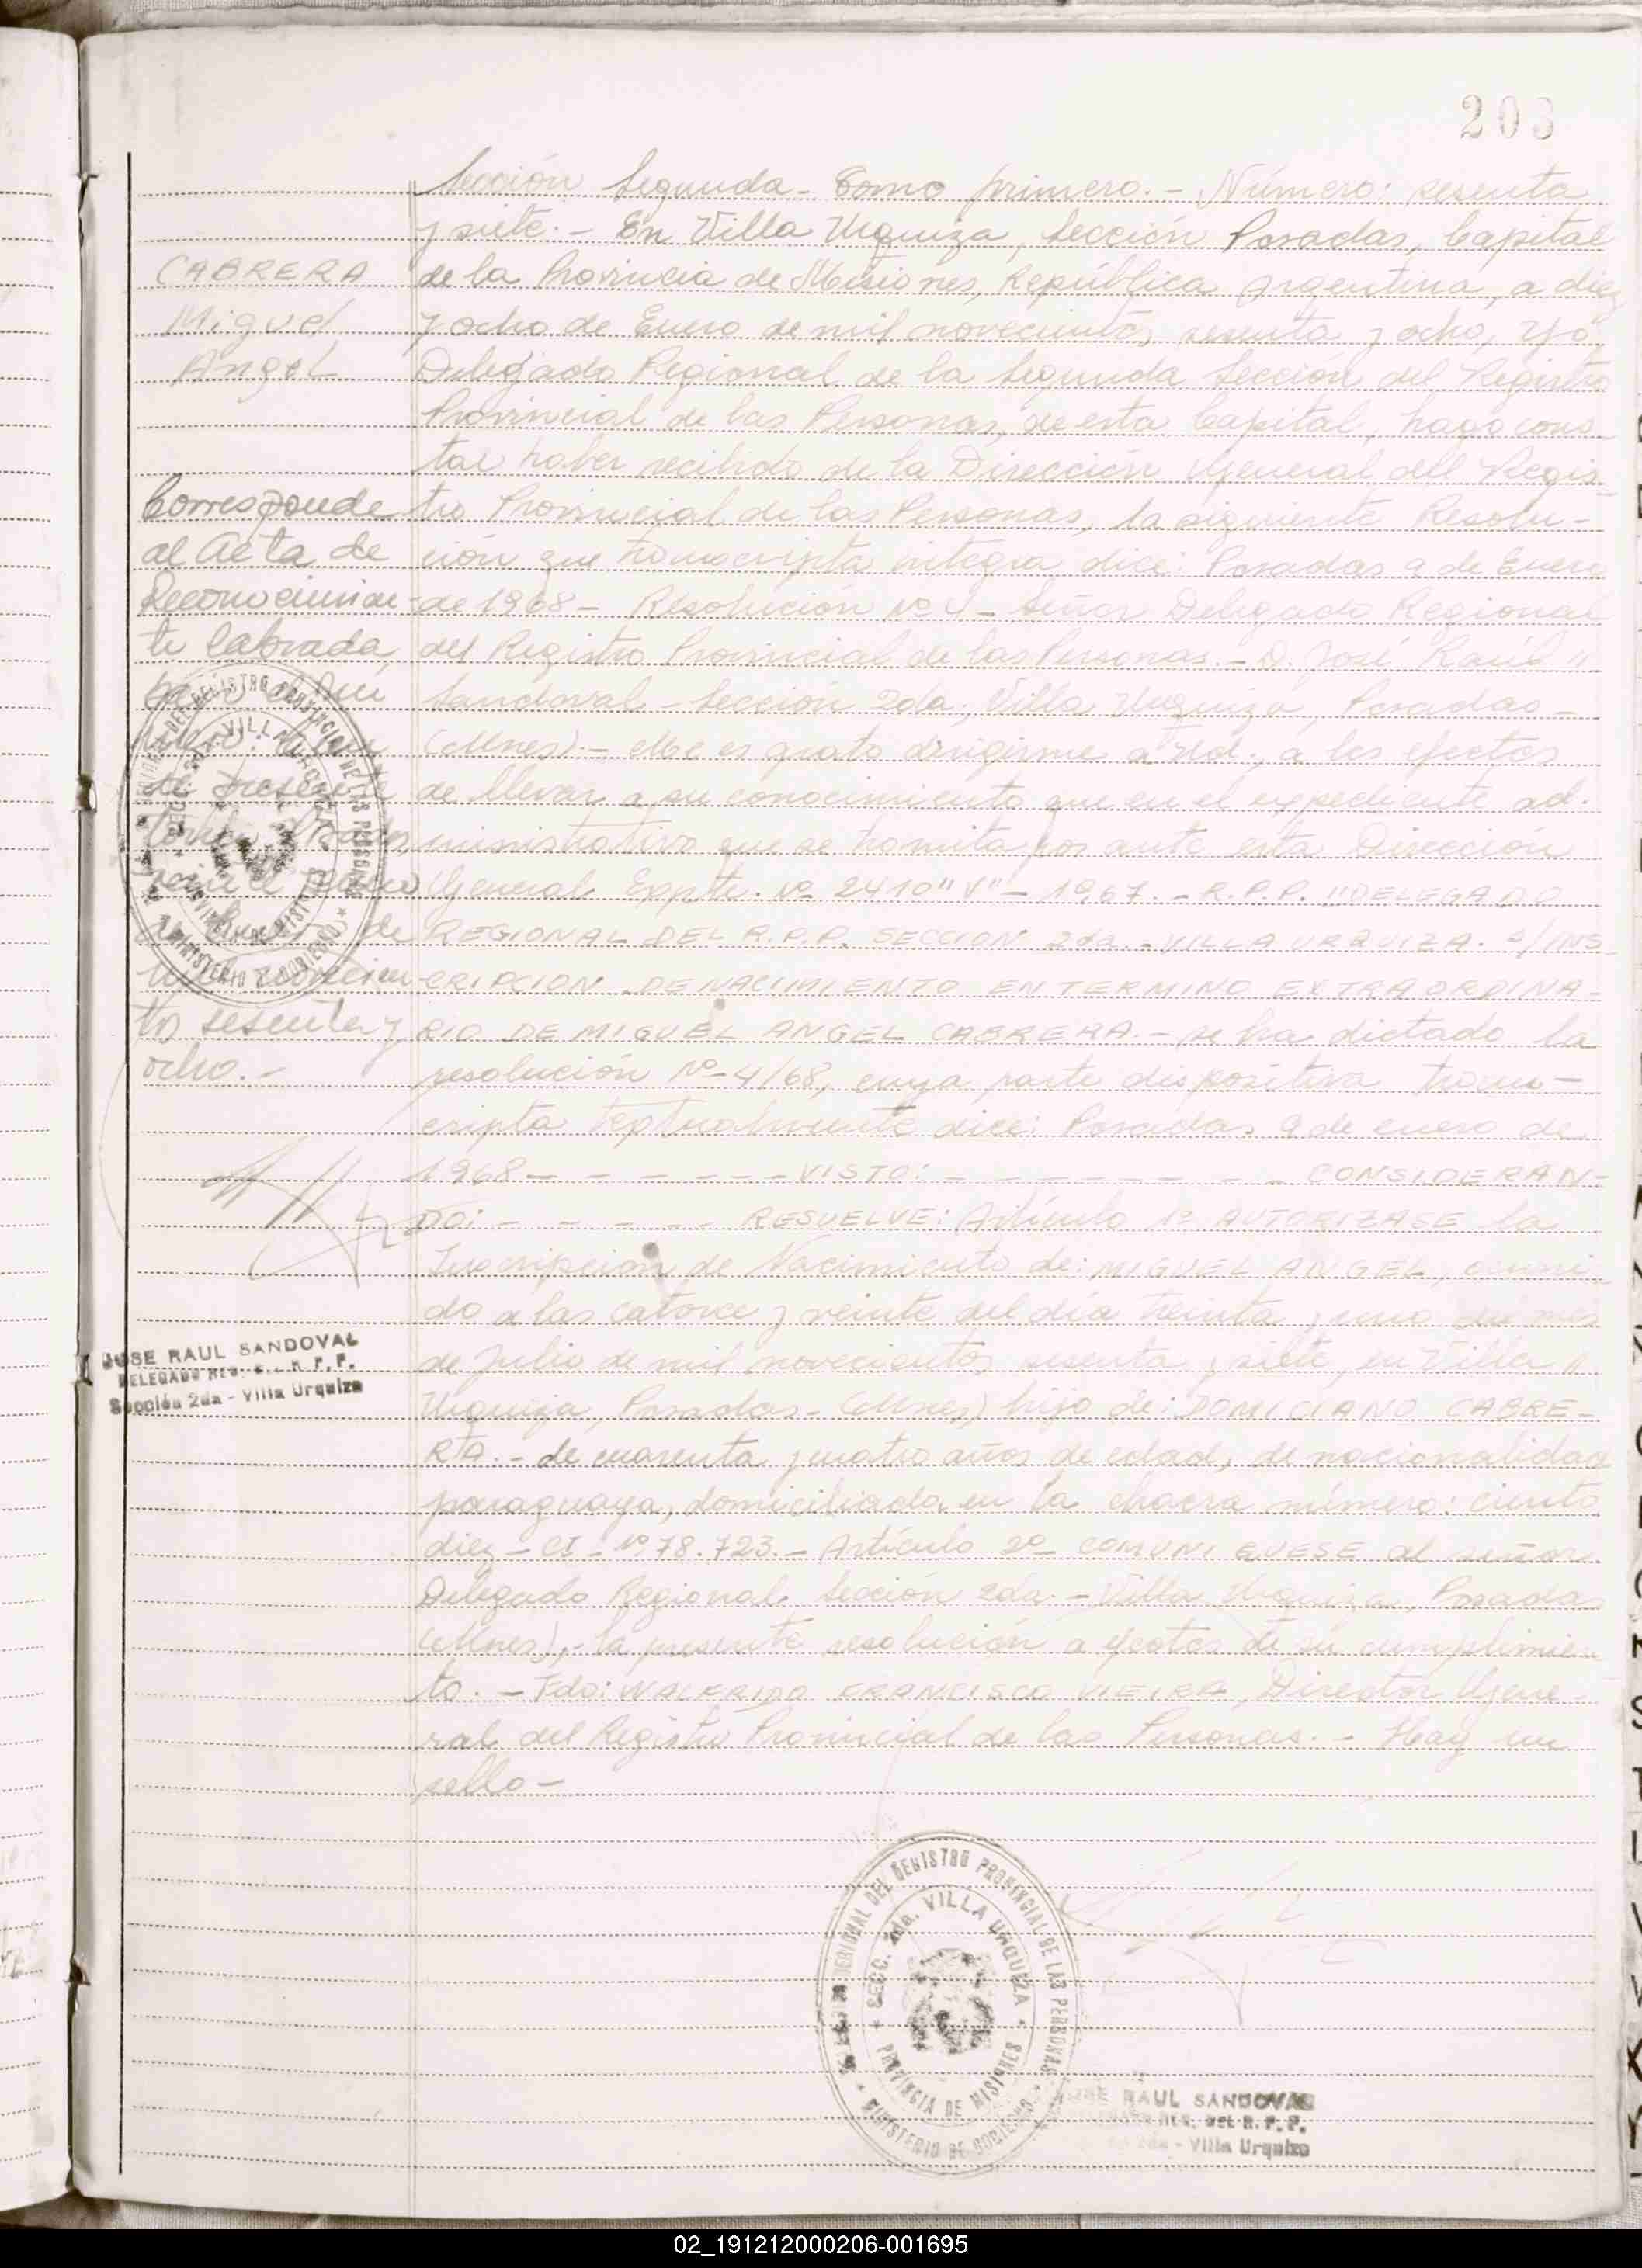 203
Sección Segunda - Tomo primero. - Número: sesenta
y siete. - En Villa Urquiza, Sección Posadas, Capital
de la Provincia de Misiones, República Argentina, a diez
y ocho de Enero de mil novecientos sesenta y ocho, Yo,
Delegado Regional de la Segunda Sección del Registro
Provincial de las Personas, de esta Capital, hago cons-
tar haber recibido de la Dirección General del Regis-
tro Provincial de las Personas, la siguiente Resolu-
ción que transcripta integra dice: Posadas 9 de Enero
de 1968 - Resolución Nº 4 - Señor Delegado Regional
del Registro Provincial de las Personas. - D. José Raúl "
Sandoval - Sección 2da; Villa Urquiza, Posadas -
(Mnes). - Me es grato dirigirme a Ud. a los efectos
de llevar a su conocimiento que en el expediente ad-
ministrativo que se tramita por ante esta Dirección
General Expte. Nº 2410 "V" - 1967. - R.P.P. "DELEGADO
REGIONAL DEL R.P.P. SECCION 2da. - VILLA URQUIZA. S/INS-
CRIPCION DE NACIMIENTO EN TERMINO EXTRAORDINA-
RIO DE MIGUEL ANGEL CABRERA. - se ha dictado la
resolución Nº - 4/68, cuya parte dispositiva trans-
cripta textualmente dice: Posadas 9 de enero de
1968 - - - - - - - VISTO: - - - - - - - - CONSIDERAN-
DO: - - - - - - RESUELVE: Artículo 1º AUTORIZASE la
Inscripción de Nacimiento de: MIGUEL ANGEL, ocurri-
do a las catorce y veinte del día treinta y uno del mes
de Julio de mil novecientos sesenta y siete, en Villa "
Urquiza, Posadas - (Mnes) hijo de: DOMICIANO CABRE-
RA. - de cuarenta y cuatro años de edad, de nacionalidad
paraguaya, domiciliado en la chacra número: ciento
diez - CI - Nº 78.723. - Artículo 2º COMUNIQUESE al señor
Delegado Regional Sección 2da. - Villa Urquiza, Posadas
(Mnes), - la presente resolución a efectos de su cumplimien-
to. - Fdo: WALFRIDO FRANCISCO VIEIRA, Director Gene-
ral del Registro Provincial de las Personas. - Hay un
sello -
CABRERA
Miguel
Angel
Corresponde
al Acta de
Reconocimien-
to labrada,
de
to sesenta y
ocho. -
JOSE RAUL SANDOVAL
DELEGADO REG. DEL R. P. P.
Sección 2da - Villa Urquiza
REGIONAL DEL REGISTRO PROVINCIAL DE LAS PERSONAS
SECC. 2da. VILLA URQUIZA
PROVINCIA DE MISIONES
MINISTERIO DE GOBIERNO
REGIONAL DEL REGISTRO PROVINCIAL DE LAS PERSONAS
SECC. 2da. VILLA URQUIZA
PROVINCIA DE MISIONES
MINISTERIO DE GOBIERNO
JOSE RAUL SANDOVAL
REG. DEL R. P. P.
2da - Villa Urquiza
02_191212000206-001695